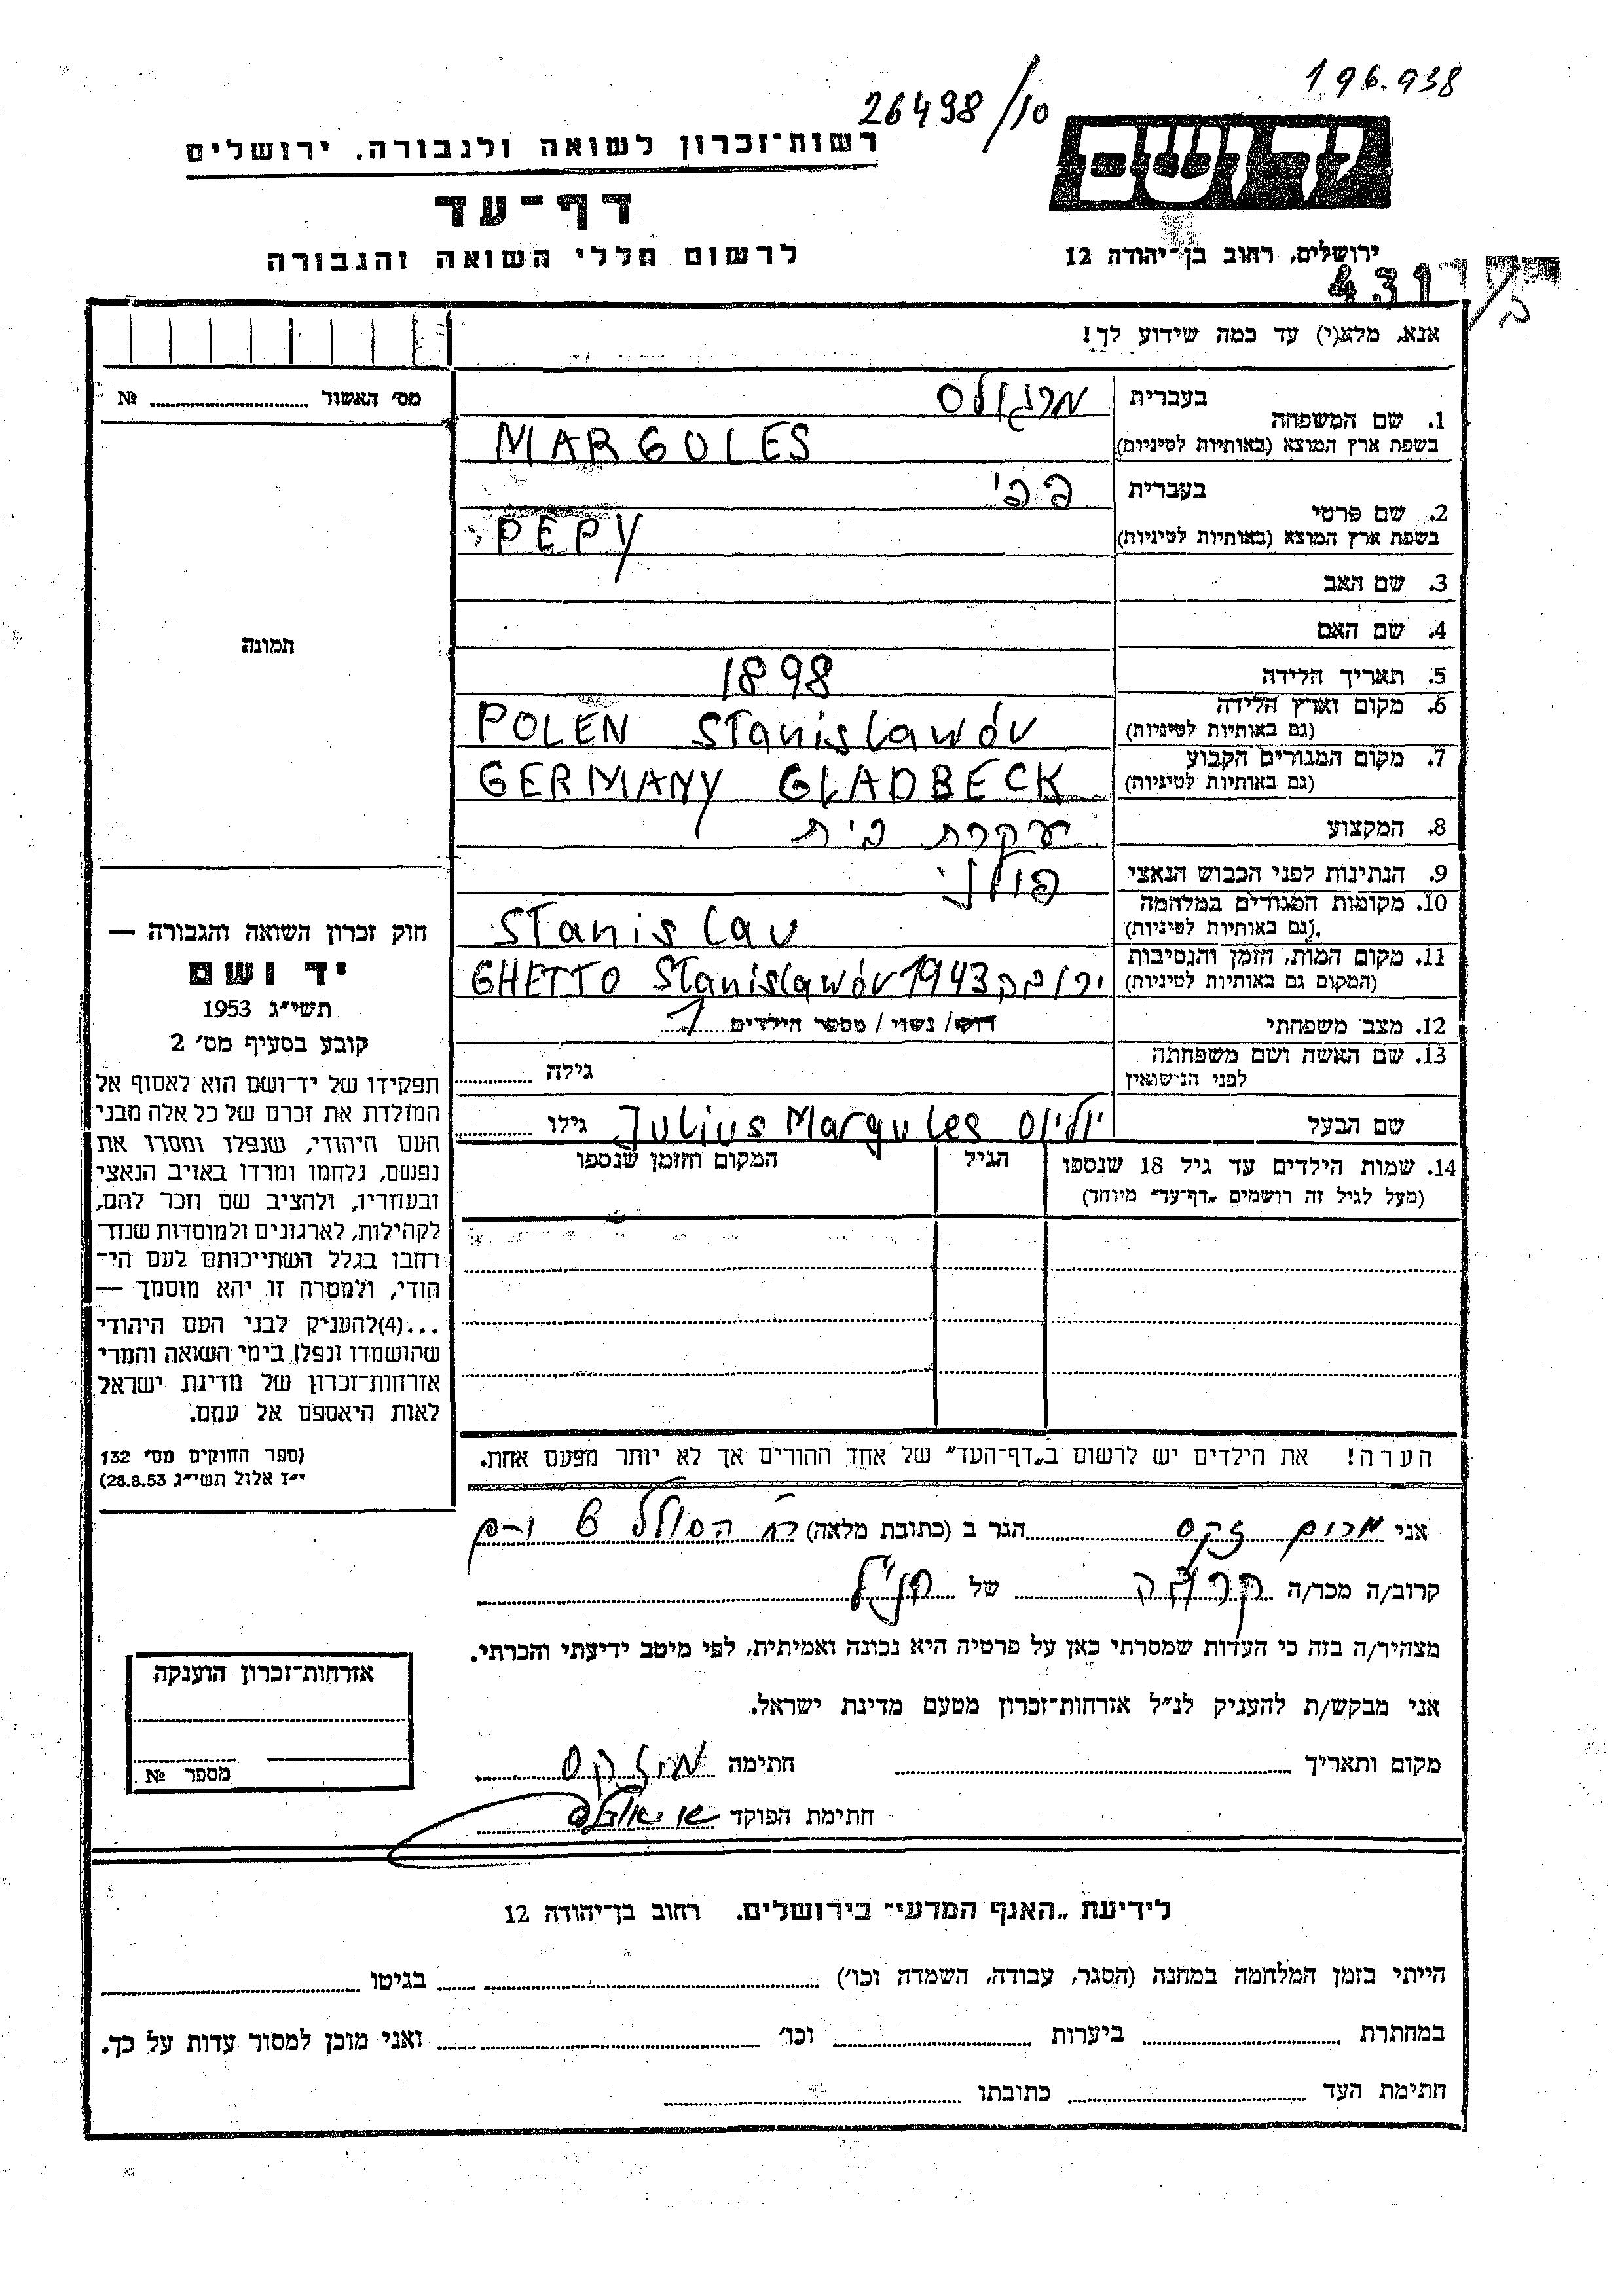 196.938
26498/10
רשות־זכרון לשואה ולגבורה, ירושלים
דף־עד
לרשום חללי השואה והגבורה
ירושלים, רחוב בן־יהודה 12
431
אנא, מלא(י) עד כמה שידוע לך!
מס׳ האשור № 
תמונה
1. שם המשפחה
בעברית מרגולס
בשפת ארץ המוצא (באותיות לטיניות) MARGULES
2. שם פרטי
בעברית פפי
בשפת ארץ המוצא (באותיות לטיניות) PEPY
3. שם האב
4. שם האם
5. תאריך הלידה 1898
6. מקום וארץ הלידה
(גם באותיות לטיניות) POLEN Stanislawów
7. מקום המגורים הקבוע
(גם באותיות לטיניות) GERMANY GLADBECK
8. המקצוע עקרת בית
9. הנתינות לפני הכבוש הנאצי פולני
10. מקומות המגורים במלחמה
(גם באותיות לטיניות) Stanislav
11. מקום המות, הזמן והנסיבות
(המקום גם באותיות לטיניות) GHETTO Stanislawów 1943
12. מצב משפחתי רווק/ נשוי / מספר הילדים 1
13. שם האשה ושם משפחתה
לפני הנישואין גילה
שם הבעל יוליוס Julius Margules גילו
14. שמות הילדים עד גיל 18 שנספו
(מעל לגיל זה רושמים „דף־עד״ מיוחד)
הגיל
המקום והזמן שנספו
הערה! את הילדים יש לרשום ב„דף־העד״ של אחד ההורים אך לא יותר מפעם אחת.
חוק זכרון השואה והגבורה —
יד ושם
תשי״ג 1953
קובע בסעיף מס׳ 2
תפקידו של יד־ושם הוא לאסוף אל
המולדת את זכרם של כל אלה מבני
העם היהודי, שנפלו ומסרו את
נפשם, נלחמו ומרדו באויב הנאצי
ובעוזריו, ולהציב שם וזכר להם,
לקהילות, לארגונים ולמוסדות שנח־
רבו בגלל השתייכותם לעם הי־
הודי, ולמטרה זו יהא מוסמך —
...(4)להעניק לבני העם היהודי
שהושמדו ונפלו בימי השואה והמרי
אזרחות־זכרון של מדינת ישראל
לאות היאספם אל עמם.
(ספר החוקים מס׳ 132
י״ז אלול תשי״ג 28.8.53)
אני מרים זקס הגר ב (כתובת מלאה) הסולל 6
קרוב/ה מכר/ה קרובה של הנ״ל
מצהיר/ה בזה כי העדות שמסרתי כאן על פרטיה היא נכונה ואמיתית, לפי מיטב ידיעתי והכרתי.
אני מבקש/ת להעניק לנ״ל אזרחות־זכרון מטעם מדינת ישראל.
מקום ותאריך חתימה מ. זקס
חתימת הפוקד
אזרחות־זכרון הוענקה
מספר №
לידיעת „האגף המדעי״ בירושלים. רחוב בן־יהודה 12
הייתי בזמן המלחמה במחנה (הסגר, עבודה, השמדה וכו׳) בגיטו
במחתרת ביערות וכו׳ ואני מוכן למסור עדות על כך.
חתימת העד כתובתו